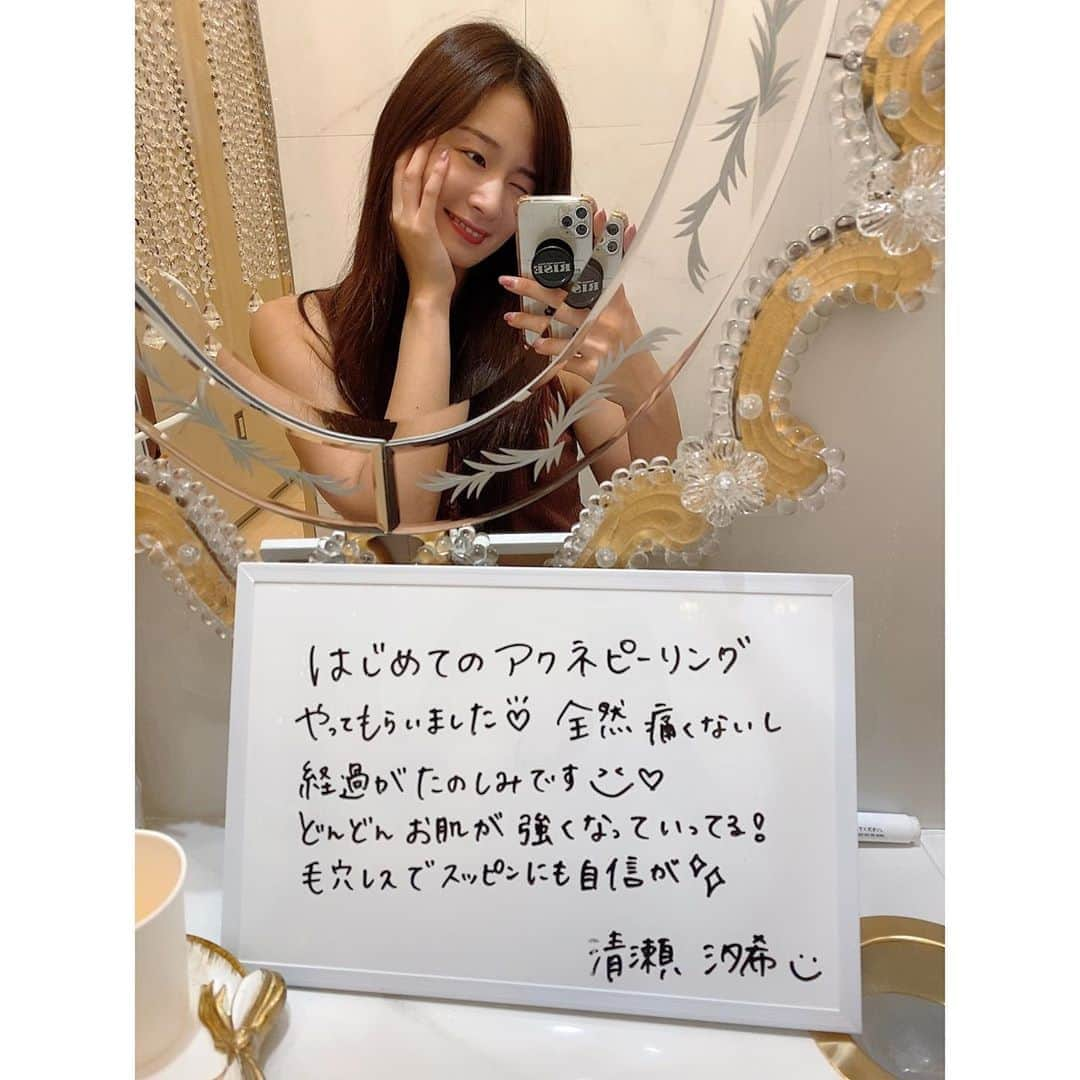 RISE
RISE
はじめてのアクネピーリング
やってもらいました♡ 全然 痛くないし
経過がたのしみです♡
どんどん お肌が 強くなっていってる!
毛穴レスでスッピンにも自信が✧✧
清瀬 汐希